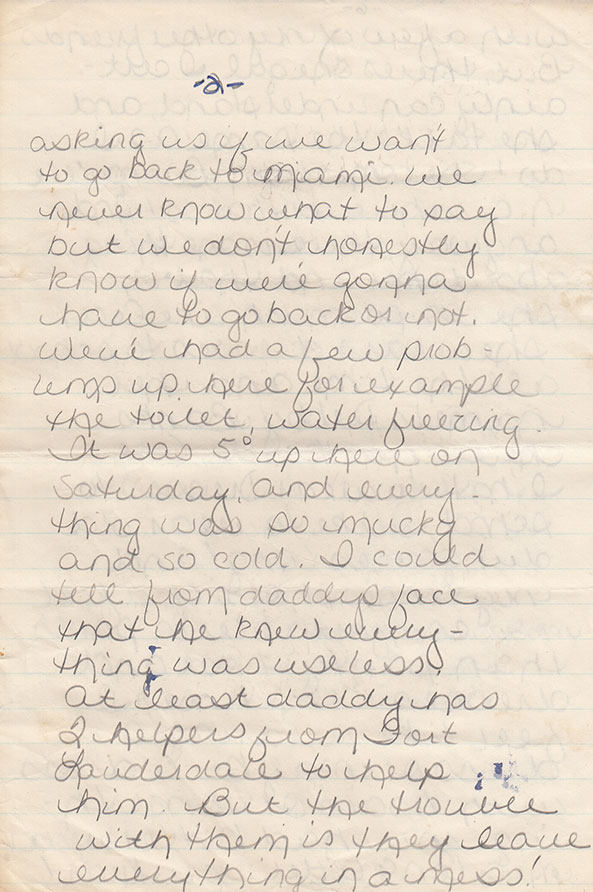 -2-
asking us if we want
to go back to Miami. We
never know what to say
but we don't honestly
know if we're gonna
have to go back or not.
We've had a few prob-
lems up here for example
the toilet, water freezing.
It was 5° up here on
Saturday, and every-
thing was so mucky
and so cold. I could
tell from daddys face
that he knew every-
thing was useless.
At least daddy has
2 helpers from Fort
Lauderdale to help
him. But the trouble
with them is they leave
everything in a mess!